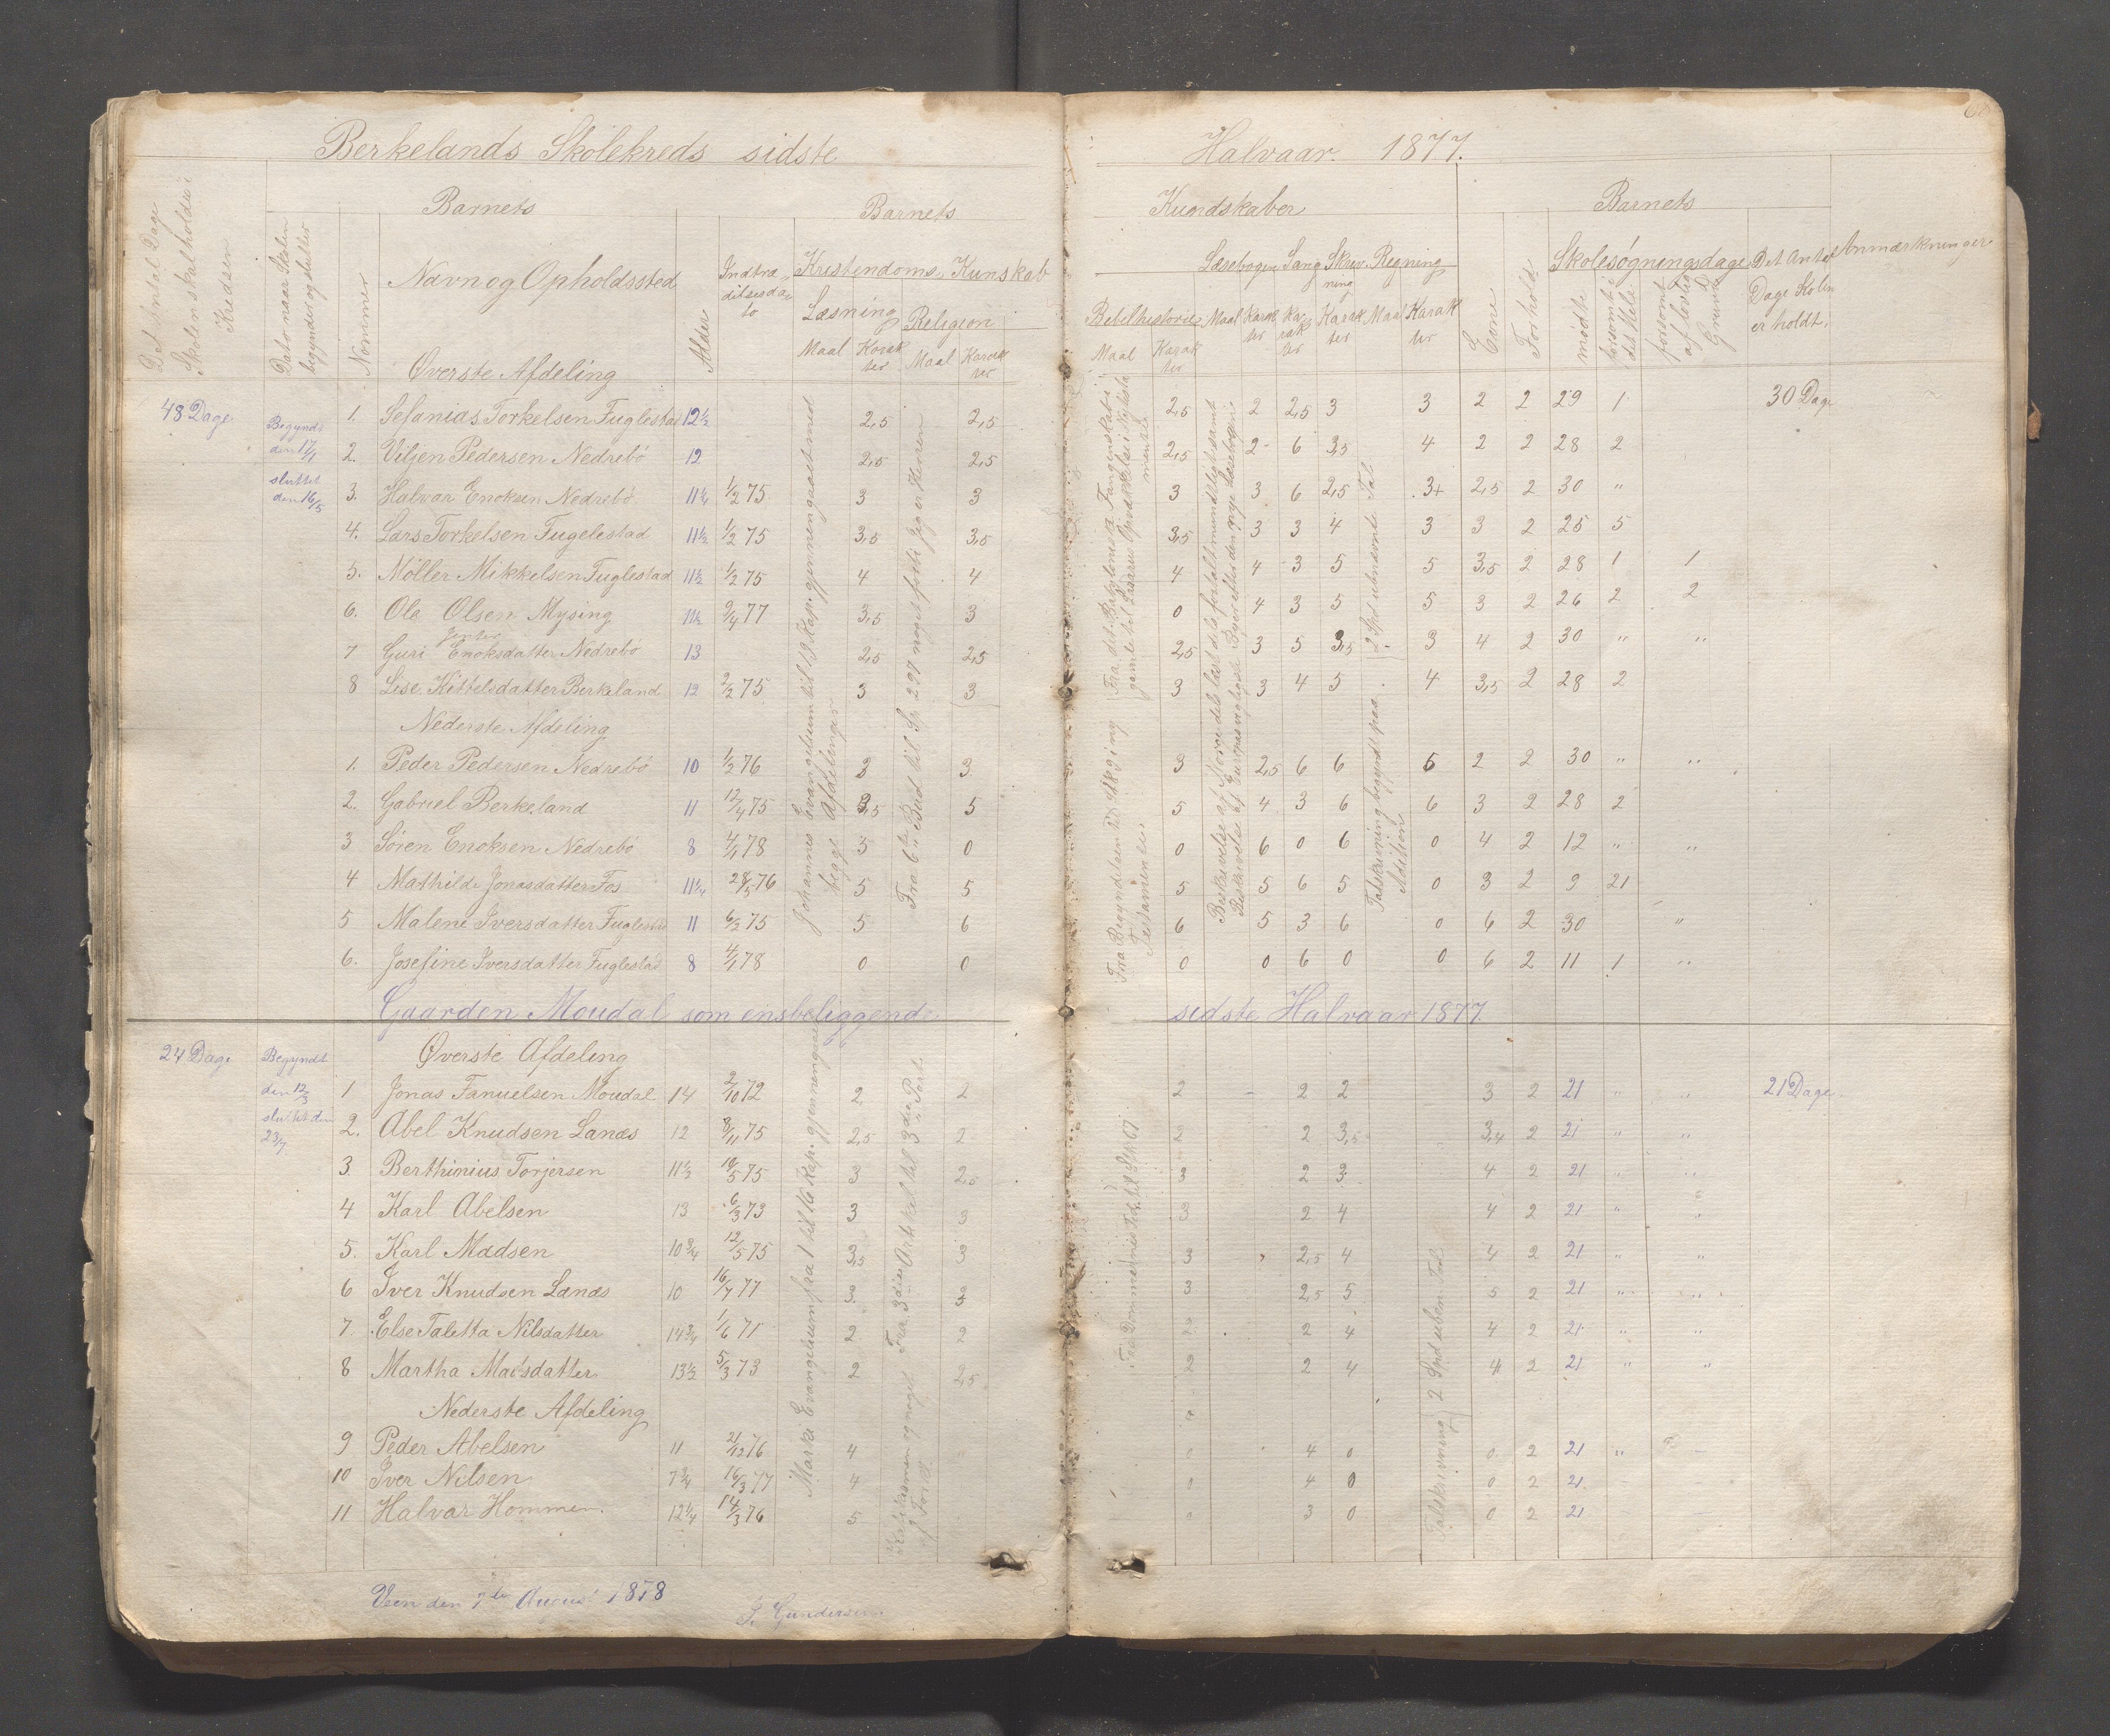 Berkelands Skolekreds sidste Halvaar. 1877.
Det Antal Dage Skolen skal holdes i Kredsen
Dato naar Skolen begynder og slutter
Nommer
Barnets
Navn og Opholdssted
Alder
Indtrædelsesdato
Barnets Kundskaber
Kristendoms Kunskab
Læsning
Maal Karakter
Religion
Maal Karakter
Bibelhistorie
Maal Karakter
Læsebogen
Maal Karakter
Sang
Karakter
Skrivning
Karakter
Regning
Maal Karakter
Barnets
Evne
Forhold
Skolesøgningsdage
mødte
forsømte det Hele
forsømt af lovlig Grund
Det Antal Dage Skolen er holdt.
Anmærkninger
Øverste Afdeling
48 Dage
Begyndt den 17/1
sluttet den 16/5
1. Sefanias Torkelsen Fuglestad 12½ 2,5 2,5 2,5 2 2,5 3 3 2 2 29 1 30 Dage
2. Viljen Pedersen Nedrebö 12 2,5 2,5 2,5 2 6 3,5 4 2 2 28 2
3. Halvar Enoksen Nedrebö 11¼ ½ 75 3 3 3 3 6 2,5 3+ 2,5 2 30 "
4. Lars Torkelsen Fugelestad 11½ ½ 75 3,5 3,5 3,5 3 3 4 3 3 2 25 5
5. Möller Mikkelsen Fuglestad 11½ ½ 75 4 4 4 4 3 5 5 3,5 2 28 1 1
6. Ole Olsen Mysing 11½ 9/4 77 3,5 3 0 4 3 5 5 3 2 26 2 2
Jenter
7 Guri Enoksdatter Nedrebö 13 2,5 2,5 2,5 3 5 3,5 3 4 2 30 " "
8 Lise Kittelsdatter Berkeland 12 2/2 75 3 3 3 3 4 5 4 3,5 2 28 2
Nederste Afdeling
1. Peder Pedersen Nedrebö 10 ½ 76 3 3 3 2,5 6 6 6 2 2 30 " "
2. Gabriel Berkeland 11 12/4 75 3,5 5 5 4 3 6 6 3 2 28 2
3 Sören Enoksen Nedrebö 8 4/1 78 5 0 0 6 0 6 0 4 2 12 " "
4 Mathilde Jonasdatter Fos 11¼ 28/5 76 5 5 5 5 6 5 0 3 2 9 21
5 Malene Iversdatter Fuglestad 11 6/2 75 5 6 6 5 3 6 0 6 2 30 "
6. Josefine Iversdatter Fuglestad 8 4/1 78 0 0 0 0 6 0 0 6 2 11 1 "
Johannes Evangelium til 19 Kap. gjennemgaaet med begge Afdelinger
Fra 6te Bud til Sp. 297 noget forti Jeg er Herren
Fra Begyndelsen til
Testamente
Fra det Babylonisa Fangenskab i gamle til Lasarus Opvækkelse i Ny Testamente
Beskrivelse af Norge dels læst dels fortalt mundtligt samt
Beskrivelse af Europas vigtigste Byer efter den nye Læsebogen
Talskrivning begyndt paa Adition
2 Spd ubenævnte Tal
Gaarden Moudal som ensbeliggende sidste Halvaar 1877
Øverste Afdeling
24 Dage
Begyndt den 12/3
sluttet den 23/7
1 Jonas Fanuelsen Moudal 14 2/10 72 2 2 2 - 2 2 3 2 21 " " 21 Dage.
2. Abel Knudsen Lanæs 12 8/11 75 2,5 2 2 2 3,5 3,4 2 21 " "
3 Berthinius Torjersen 11½ 10/5 75 3 2,5 3 2 3 4 2 21 " "
4 Karl Abelsen 13 6/3 73 3 3 3 2 4 4 2 21 " "
5. Karl Madsen 10¾ 12/5 75 3,5 3 3 2,5 4 4 2 21 " "
6 Iver Knudsen Lanæs 10 16/7 77 3 3 3 2,5 5 5 2 21 " "
7 Else Taletta Nilsdatter 14¾ 1/6 71 2 2 2 2 4 4 2 21 " "
8 Martha Madsdatter 13½ 5/3 73 2 2,5 2 2 4 4 2 21 " "
Nederste Afdeling
9 Peder Abelsen 11 21/12 76 4 0 4 0 0 2 21 " -
10 Iver Nilsen 7¾ 16/3 77 4 0 4 0 0 2 21
11 Halvar Hommen. 12¼ 14/3 76 5 0 3 0 0 2 21 -
Marks Evangelium fra 1 til 16 Kap. gjennemgaaet
Fra 3die Artikel til 3die Part.
Katekismen og noget af Forkl.
Fra Dommernes Tid til Sp. 67
Talskrivning 2 Spd uben. Tal
Veen den 7de August 1878
J. Gundersen